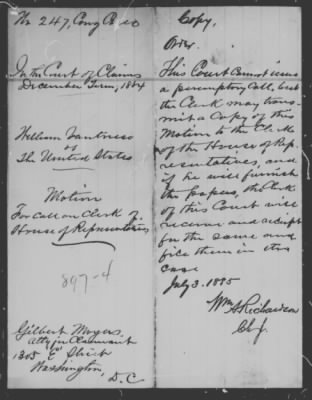 No 247, Cong Case
In the Court of Claims
December Term, 1884
William
vs
The United States
Motion
For call on Clerk of
House of Representatives
897-4
Gilbert Moyers,
Atty for Claimant
1305 "E" Street
Washington,
D.C
Copy.
Order.
This Court cannot issue
a peremptory call, but
the Clerk may trans-
mit a Copy of this
Motion to the Clerk
of the House of Rep-
resentatives, and
if he will furnish
the papers, the Clerk
of this Court will
receive and receipt
for the same and
file them in this
case
July 3. 1885
Wm A Richardson
Ch. J.